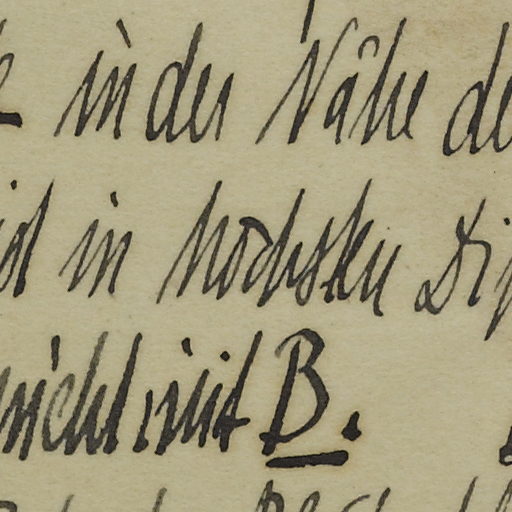 in der Nähe de
in höchsten Di
nicht mit B.